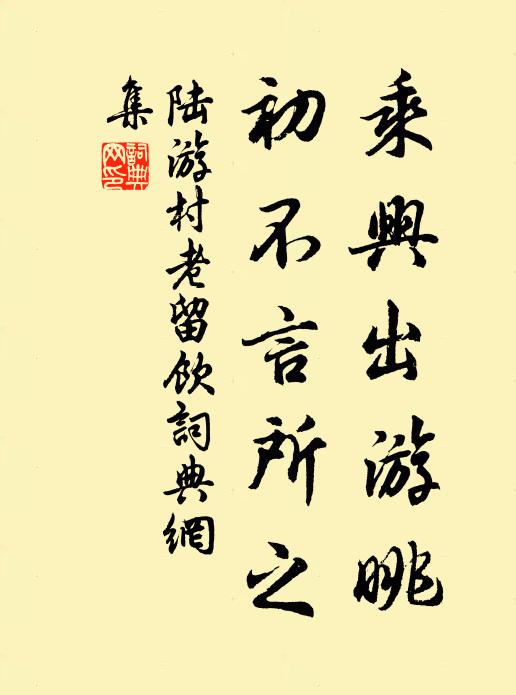 乘興出游眺
初不言所之
陆游村老留飲詞典網
集
詞典
网印